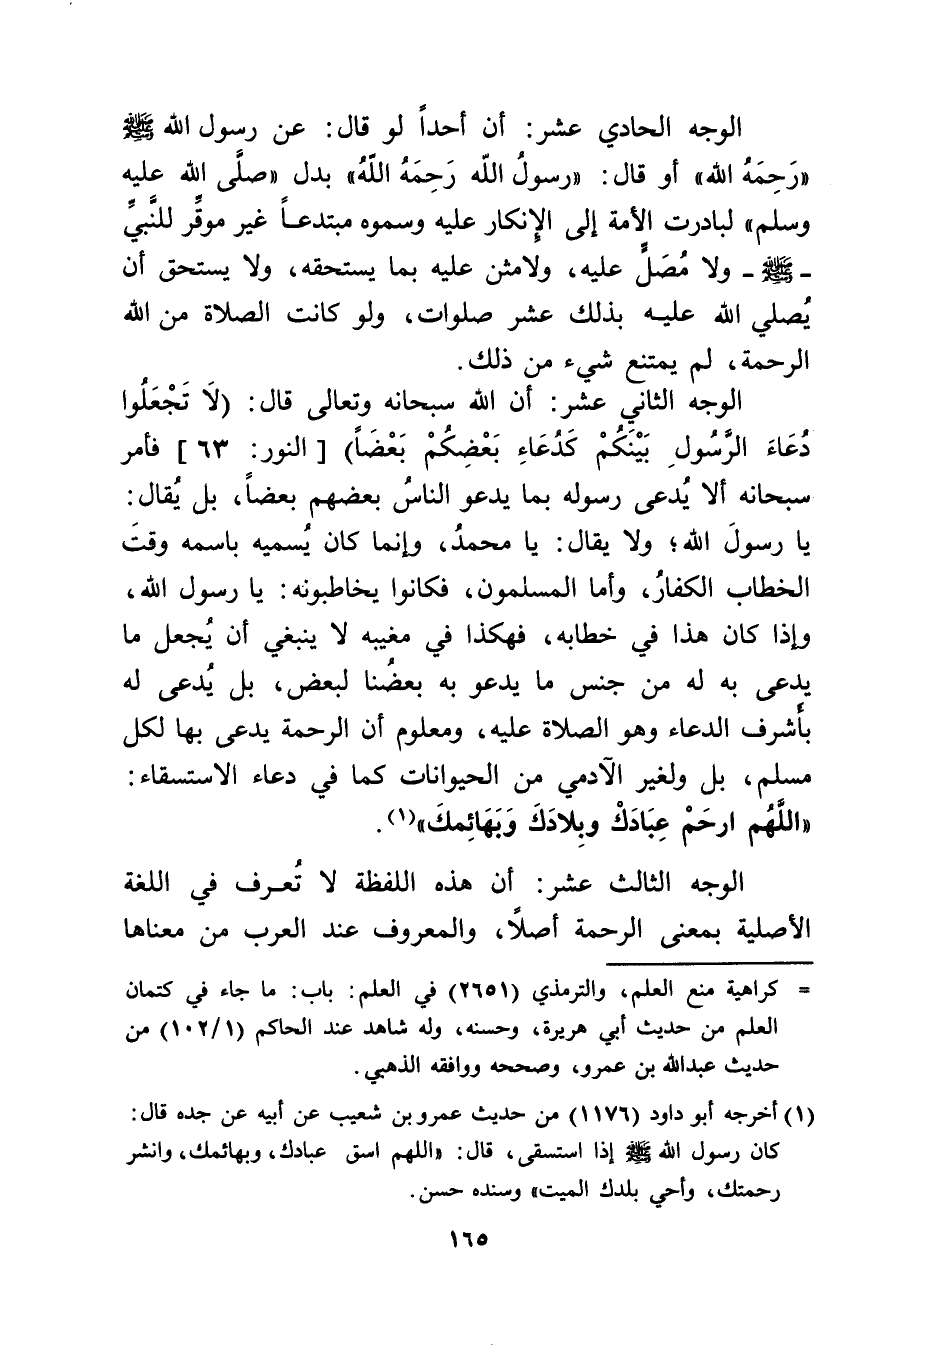 الوجه الحادي عشر: أن أحداً لو قال: عن رسول الله ﷺ
«رَحِمَهُ الله» أو قال: «رسولُ اللّه رَحِمَهُ اللّهُ» بدل «صلَّى الله عليه
وسلم» لبادرت الأمة إلى الإنكار عليه وسموه مبتدعاً غير موقِّر للنَّبيِّ
- ﷺ - ولا مُصَلٍّ عليه، ولامثن عليه بما يستحقه، ولا يستحق أن
يُصلي الله عليه بذلك عشر صلوات، ولو كانت الصلاة من الله
الرحمة، لم يمتنع شيء من ذلك.
الوجه الثاني عشر: أن الله سبحانه وتعالى قال: (لَا تَجْعَلُوا
دُعَاءَ الرَّسُولِ بَيْنَكُمْ كَدُعَاءِ بَعْضِكُمْ بَعْضَاً) [ النور: ٦٣ ] فأمر
سبحانه ألا يُدعى رسوله بما يدعو الناسُ بعضهم بعضاً، بل يُقال:
يا رسولَ الله؛ ولا يقال: يا محمدُ، وإنما كان يُسميه باسمه وقتَ
الخطاب الكفارُ، وأما المسلمون، فكانوا يخاطبونه: يا رسول الله،
وإذا كان هذا في خطابه، فهكذا في مغيبه لا ينبغي أن يُجعل ما
يدعى به له من جنس ما يدعو به بعضُنا لبعض، بل يُدعى له
بأشرف الدعاء وهو الصلاة عليه، ومعلوم أن الرحمة يدعى بها لكل
مسلم، بل ولغير الآدمي من الحيوانات كما في دعاء الاستسقاء:
«اللَّهُم ارحَمْ عِبَادَكْ وبِلادَكَ وَبَهَائِمكَ»(١).
الوجه الثالث عشر: أن هذه اللفظة لا تُعرف في اللغة
الأصلية بمعنى الرحمة أصلًا، والمعروف عند العرب من معناها
= كراهية منع العلم، والترمذي (٢٦٥١) في العلم: باب: ما جاء في كتمان
العلم من حديث أبي هريرة، وحسنه، وله شاهد عند الحاكم (١٠٢/١) من
حديث عبدالله بن عمرو، وصححه ووافقه الذهبي.
(١) أخرجه أبو داود (١١٧٦) من حديث عمرو بن شعيب عن أبيه عن جده قال:
كان رسول الله ﷺ إذا استسقى، قال: «اللهم اسق عبادك، وبهائمك، وانشر
رحمتك، وأحي بلدك الميت» وسنده حسن.
١٦٥